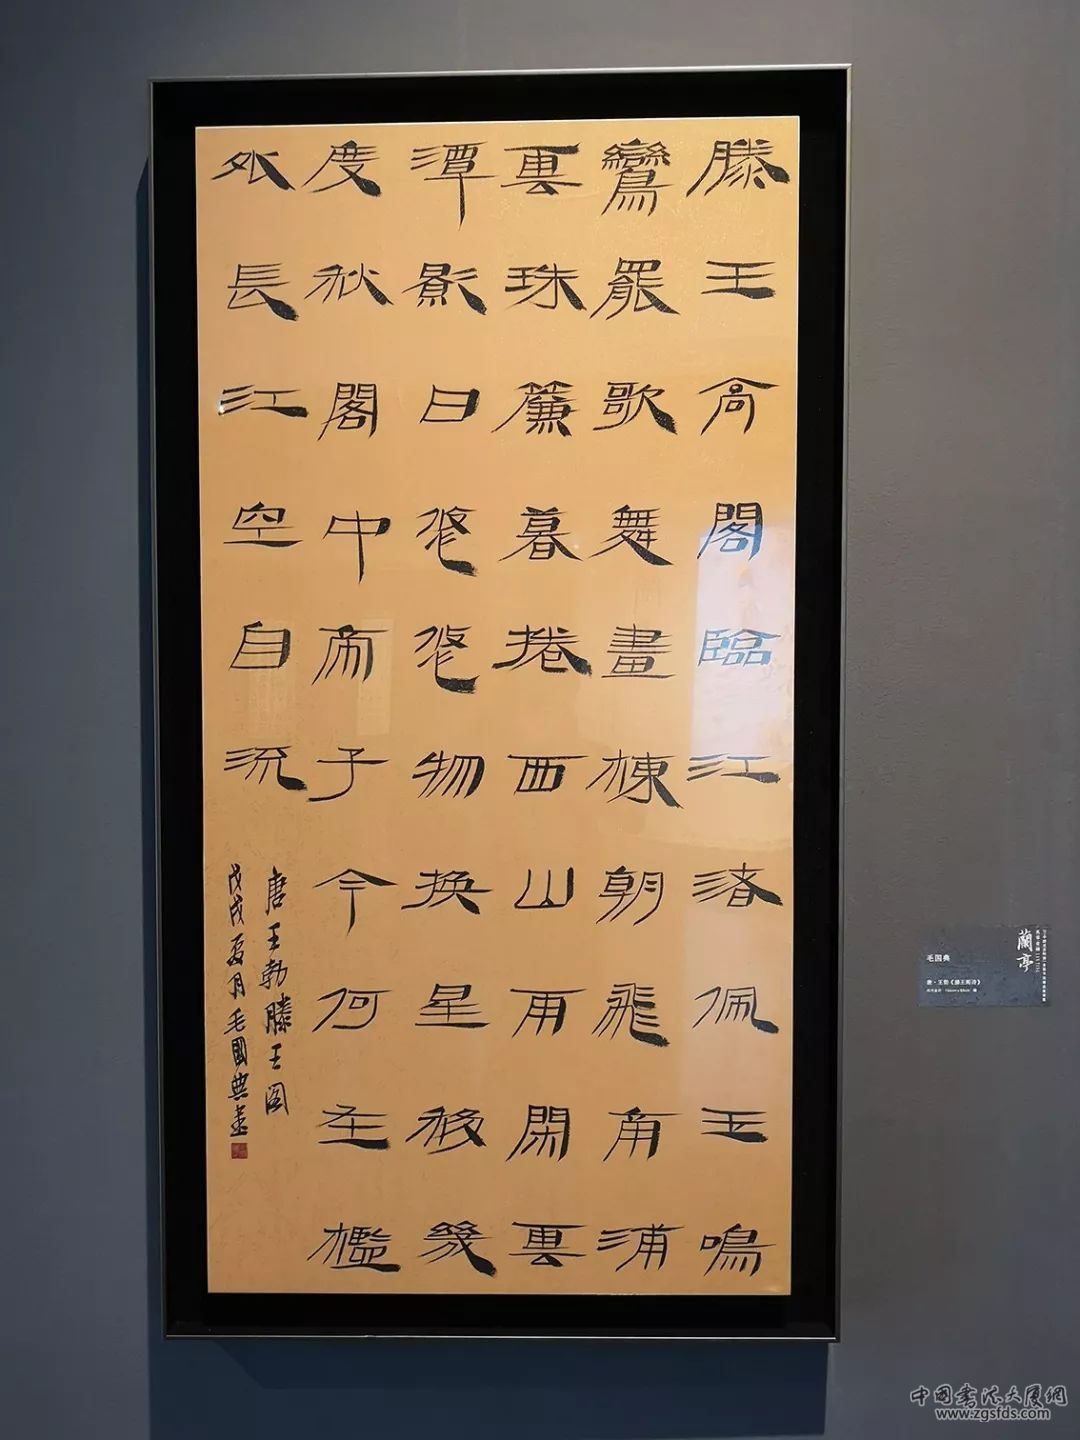 滕王高閣臨江渚佩玉鳴
鸞罷歌舞畫棟朝飛南浦
雲珠簾暮捲西山雨閑雲
潭影日悠悠物換星移幾
度秋閣中帝子今何在檻
外長江空自流
唐王勃滕王阁
戊戌夏月毛國典書
蘭亭
毛国典
唐·王勃《滕王阁诗》
中國書法大厦網
www.zgsfds.com